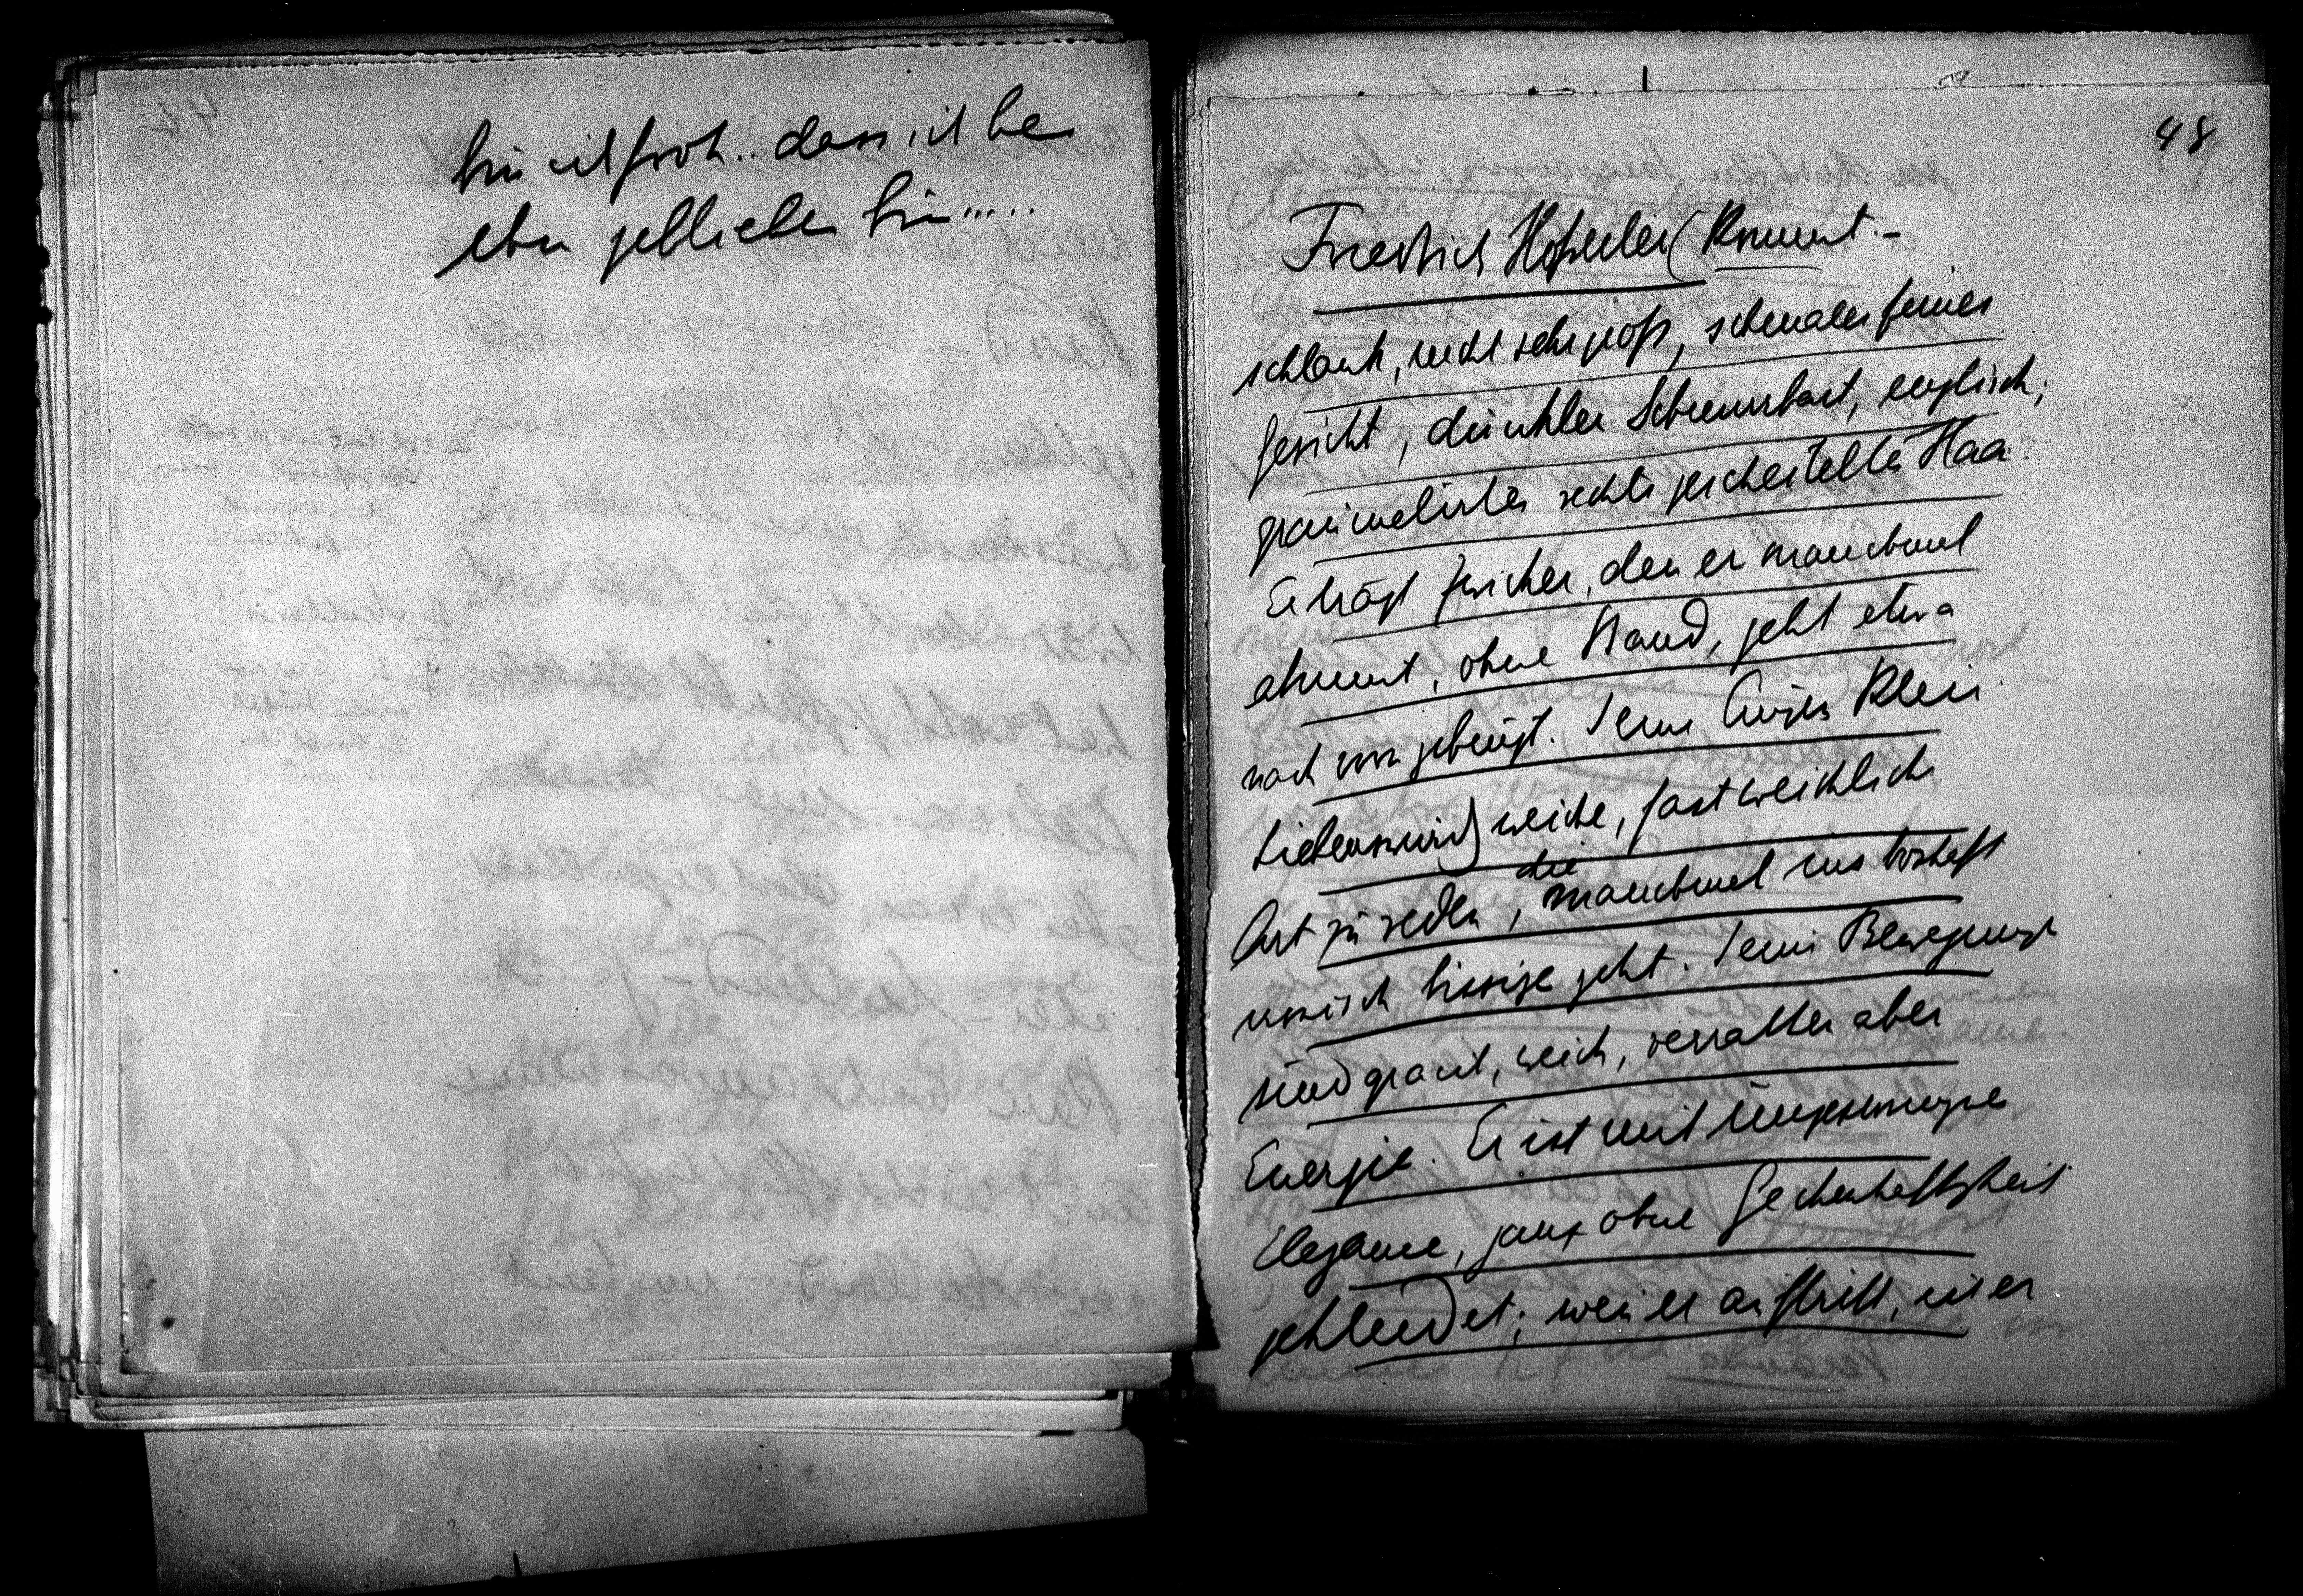 bin ich froh.. dass ich le
ben geblieben bin.....
48
Friedrich Hofreiter (kommt.-
schlank, nicht sehr gross, schmales feines
Gesicht, dunkler Schnurrbart, englisch;
graumelirtes rechts gescheiteltes Haa.
Er trägt Zwicker, den er manchmal
abnimt, ohne Band, geht etwa
nach vorn gebeugt. Seine Augen klein.
Liebenswürd weiche, fast weichliche
Art zu reden, die manchmal ins boshaft
ironisch bissige geht. Seine Bewegungen
sind weich, verrathen aber
Energie. Er ist mit ungezwungner
Eleganz, ganz ohne Geckenhaftigkeit
gekleidet;